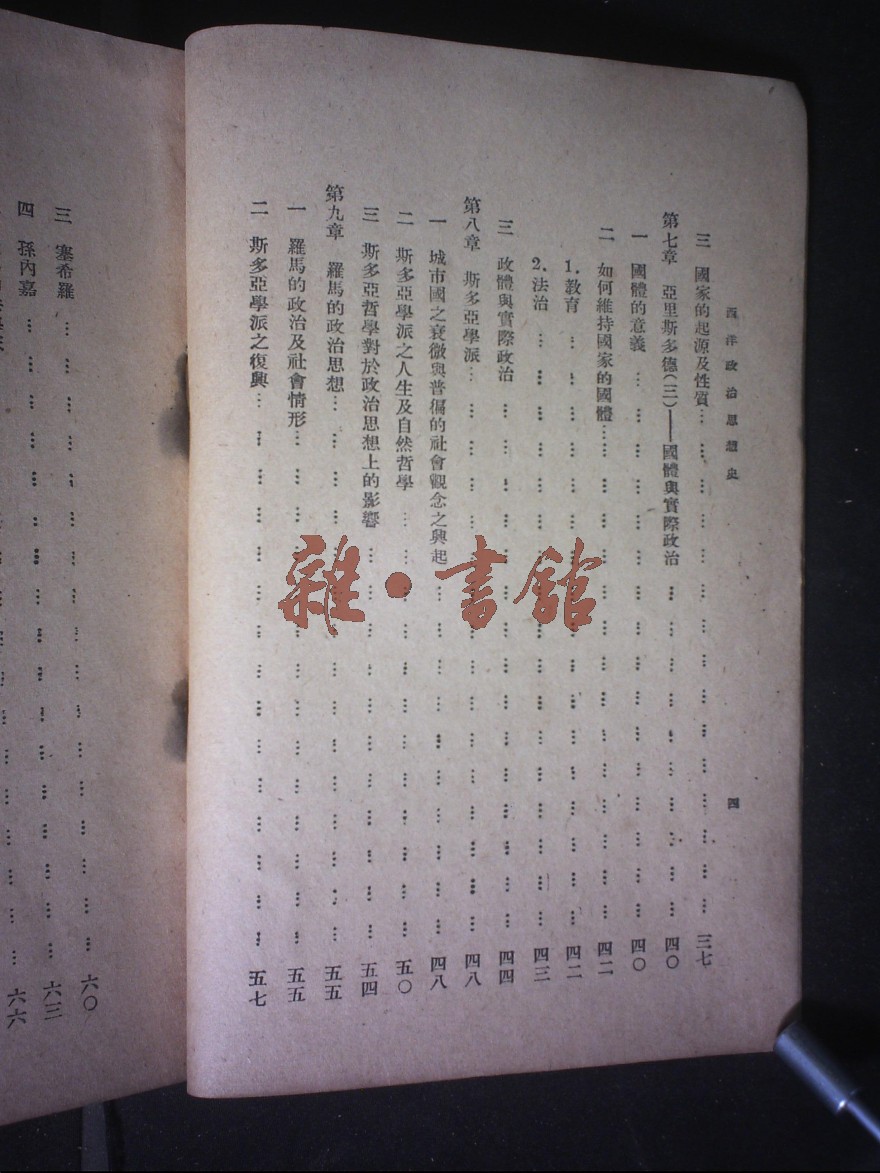 西洋政治思想史
四
三 國家的起源及性質 三七
第七章 亞里斯多德(三)——國體與實際政治 四〇
一 國體的意義 四〇
二 如何維持國家的國體 四二
1.教育 四二
2.法治 四三
三 政體與實際政治 四四
第八章 斯多亞學派 四八
一 城市國之衰微與普徧的社會觀念之興起 四八
二 斯多亞學派之人生及自然哲學 五〇
三 斯多亞哲學對於政治思想上的影響 五四
第九章 羅馬的政治思想 五五
一 羅馬的政治及社會情形 五五
二 斯多亞學派之復興 五七
三 塞希羅 六〇
四 孫內嘉 六三
六六
雜·書館